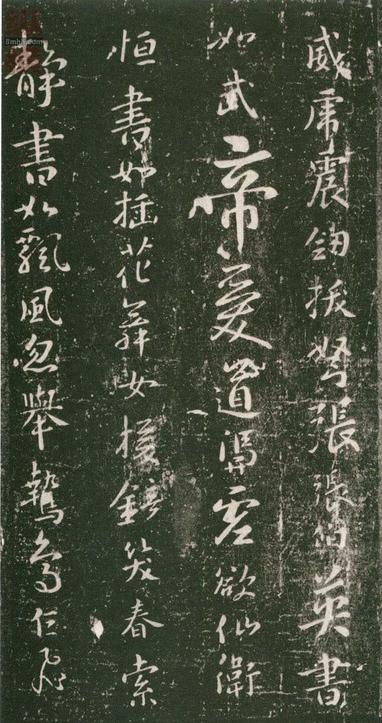 威虎震劍拔弩張張伯英書
如武帝愛道馮虛欲仙衛
恒書如插花舞女援鏡笑春索
靜書如飄風忽舉鷙鳥乍飛